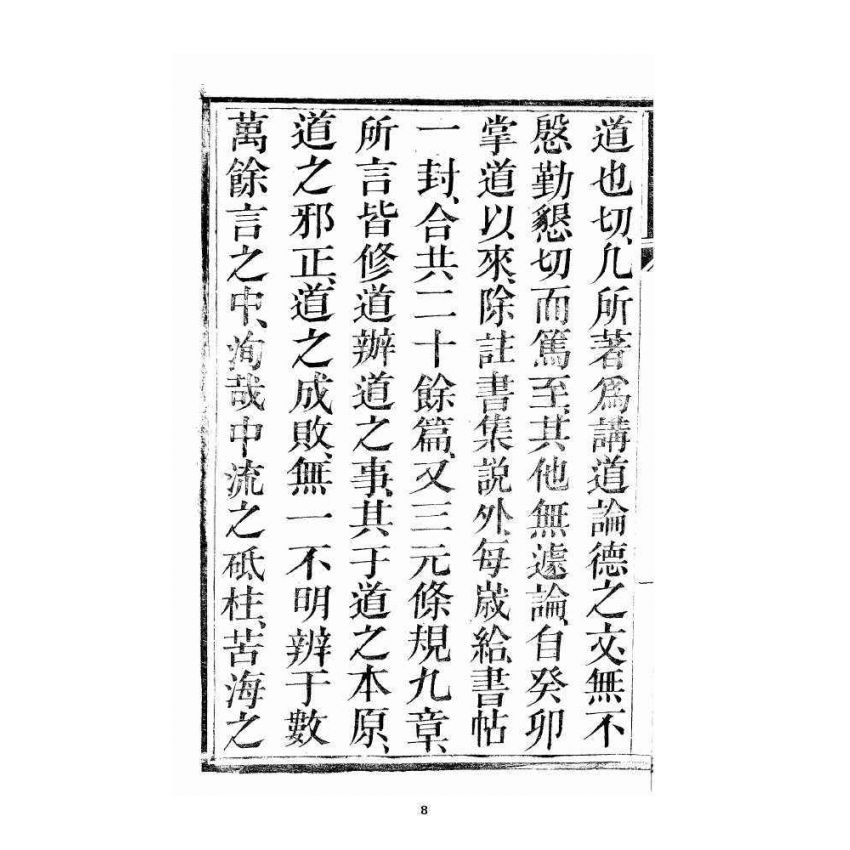 道也切、凡所著爲講道論德之文、無不
慇勤懇切而篤至、其他無遽論、自癸卯
掌道以來、除註書集説外、每歲給書帖
一封、合共二十餘篇、又三元條規九章、
所言皆修道辦道之事、其于道之本原、
道之邪正、道之成敗、無一不明辨于數
萬餘言之中、洵哉中流之砥柱、苦海之
8